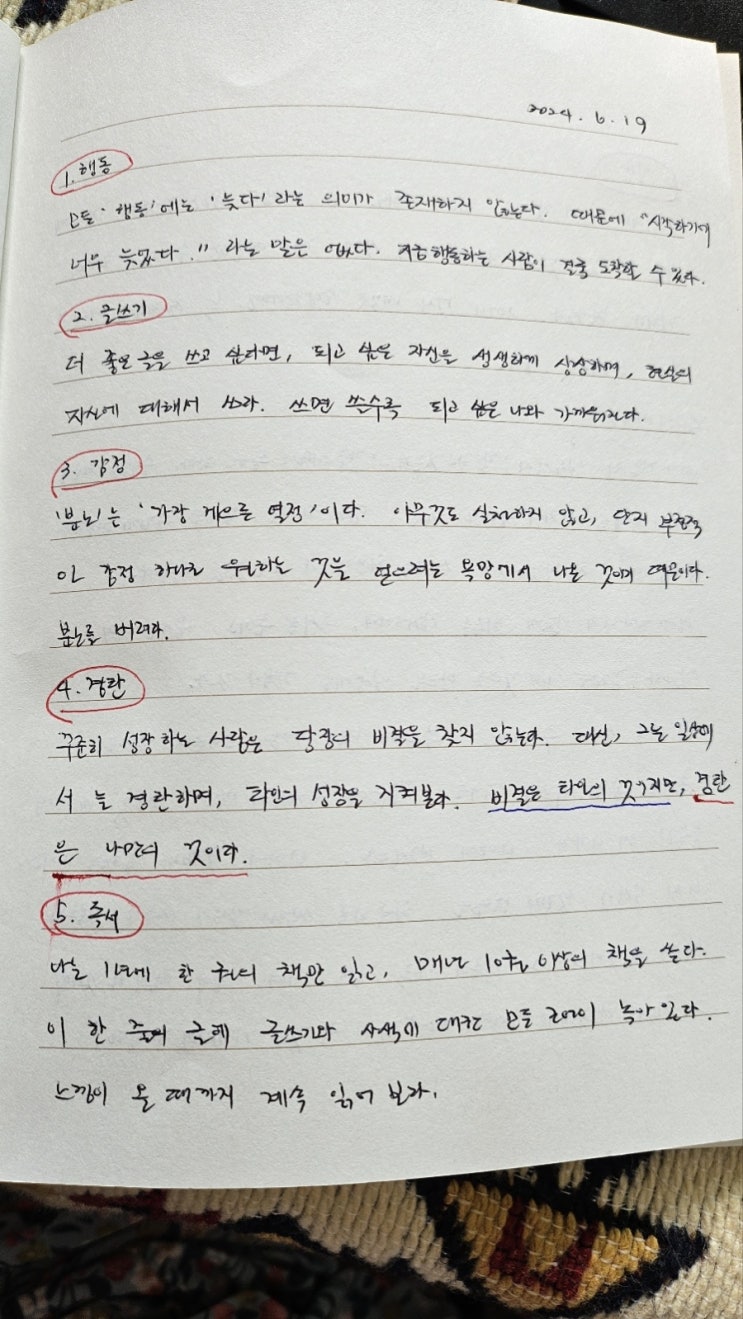 2024. 6. 19
1. 행동
모든 '행동'에는 '늦다'라는 의미가 존재하지 않는다. 때문에 "시작하기에
너무 늦었다." 라는 말은 없다. 지금 행동하는 사람이 결국 도착할 수 있다.
2. 글쓰기
더 좋은 글을 쓰고 싶다면, 되고 싶은 자신을 생생하게 상상하며, 현실의
자신에 대해서 쓰라. 쓰면 쓸수록 되고 싶은 나와 가까워진다.
3. 감정
'분노'는 '가장 게으른 열정'이다. 아무것도 실천하지 않고, 단지 부정적
인 감정 하나로 원하는 것을 얻으려는 욕망에서 나온 것이기 때문이다.
분노를 버려라.
4. 경탄
꾸준히 성장하는 사람은 당장의 비결을 찾지 않는다. 대신, 그는 일상에
서 늘 경탄하며, 타인의 성장을 지켜본다. 비결은 타인의 것이지만, 경탄
은 나만의 것이다.
5. 독서
나는 1년에 한 권의 책만 읽고, 매년 10권 이상의 책을 쓴다.
이 한 줄의 글에 글쓰기와 사색에 대한 모든 것이 녹아 있다.
느낌이 올 때까지 계속 읽어 보라.